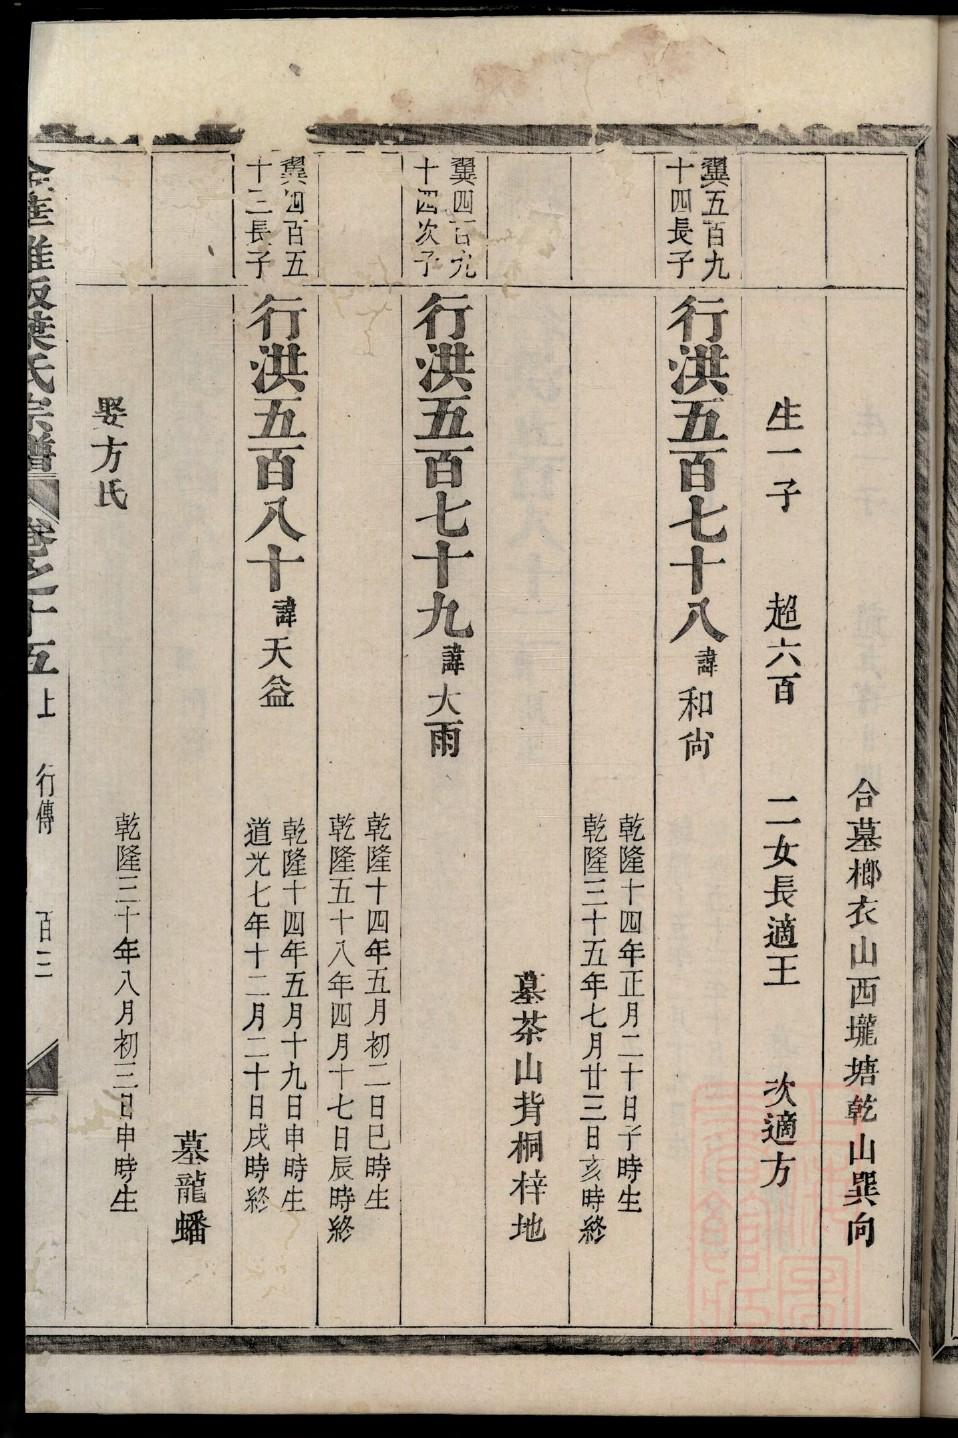 合墓榔衣山西壠塘乾山巽向
生一子 超六百 二女長適王 次適方
翼五百九十四長子
行洪五百七十八 諱和尙
乾隆十四年正月二十日子時生
乾隆三十五年七月廿三日亥時終
墓茶山背桐梓地
翼四百九十四次子
行洪五百七十九 諱大雨
乾隆十四年五月初二日巳時生
乾隆五十八年四月十七日辰時終
翼四百五十三長子
行洪五百八十 諱天益
乾隆十四年五月十九日申時生
道光七年十二月二十日戌時終
墓龍蟠
娶方氏
乾隆三十年八月初三日申時生
金華雅畈葉氏宗譜 卷之十五 上 行傳 百三